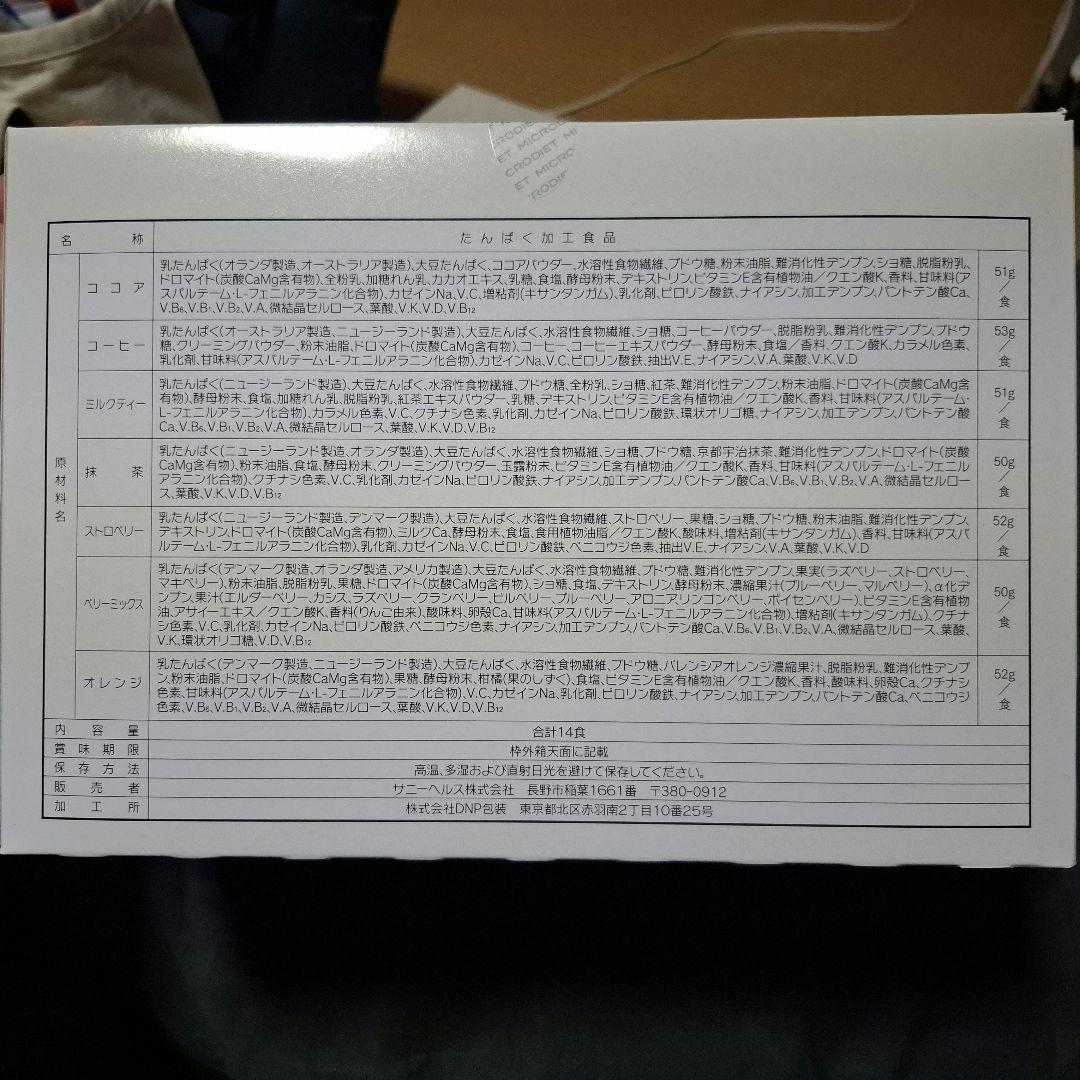 RODIET
ET MICRO
CRODIET
ET MICRO
RODIE
名称 たんぱく加工食品
原材料名
ココア
乳たんぱく(オランダ製造、オーストラリア製造)、大豆たんぱく、ココアパウダー、水溶性食物繊維、ブドウ糖、粉末油脂、難消化性デンプン、ショ糖、脱脂粉乳、
ドロマイト(炭酸CaMg含有物)、全粉乳、加糖れん乳、カカオエキス、乳糖、食塩、酵母粉末、デキストリン、ビタミンE含有植物油／クエン酸K、香料、甘味料(ア
スパルテーム・L-フェニルアラニン化合物)、カゼインNa、V.C、増粘剤(キサンタンガム)、乳化剤、ピロリン酸鉄、ナイアシン、加工デンプン、パントテン酸Ca、
V.B₆、V.B₁、V.B₂、V.A、微結晶セルロース、葉酸、V.K、V.D、V.B₁₂
51g／食
コーヒー
乳たんぱく(オーストラリア製造、ニュージーランド製造)、大豆たんぱく、水溶性食物繊維、ショ糖、コーヒーパウダー、脱脂粉乳、難消化性デンプン、ブドウ
糖、クリーミングパウダー、粉末油脂、ドロマイト(炭酸CaMg含有物)、コーヒー、コーヒーエキスパウダー、酵母粉末、食塩／香料、クエン酸K、カラメル色素、
乳化剤、甘味料(アスパルテーム・L-フェニルアラニン化合物)、カゼインNa、V.C、ピロリン酸鉄、抽出V.E、ナイアシン、V.A、葉酸、V.K、V.D
53g／食
ミルクティー
乳たんぱく(ニュージーランド製造)、大豆たんぱく、水溶性食物繊維、ブドウ糖、全粉乳、ショ糖、紅茶、難消化性デンプン、粉末油脂、ドロマイト(炭酸CaMg含
有物)、酵母粉末、食塩、加糖れん乳、脱脂粉乳、紅茶エキスパウダー、乳糖、デキストリン、ビタミンE含有植物油／クエン酸K、香料、甘味料(アスパルテーム・
L-フェニルアラニン化合物)、カラメル色素、V.C、クチナシ色素、乳化剤、カゼインNa、ピロリン酸鉄、環状オリゴ糖、ナイアシン、加工デンプン、パントテン酸
Ca、V.B₆、V.B₁、V.B₂、V.A、微結晶セルロース、葉酸、V.K、V.D、V.B₁₂
51g／食
抹茶
乳たんぱく(ニュージーランド製造、オランダ製造)、大豆たんぱく、水溶性食物繊維、ショ糖、ブドウ糖、京都宇治抹茶、難消化性デンプン、ドロマイト(炭酸
CaMg含有物)、粉末油脂、食塩、酵母粉末、クリーミングパウダー、玉露粉末、ビタミンE含有植物油／クエン酸K、香料、甘味料(アスパルテーム・L-フェニル
アラニン化合物)、クチナシ色素、V.C、乳化剤、カゼインNa、ピロリン酸鉄、ナイアシン、加工デンプン、パントテン酸Ca、V.B₆、V.B₁、V.B₂、V.A、微結晶セルロー
ス、葉酸、V.K、V.D、V.B₁₂
50g／食
ストロベリー
乳たんぱく(ニュージーランド製造、デンマーク製造)、大豆たんぱく、水溶性食物繊維、ストロベリー、果糖、ショ糖、ブドウ糖、粉末油脂、難消化性デンプン、
デキストリン、ドロマイト(炭酸CaMg含有物)、ミルクCa、酵母粉末、食塩、食用植物油脂／クエン酸K、酸味料、増粘剤(キサンタンガム)、香料、甘味料(アスパ
ルテーム・L-フェニルアラニン化合物)、乳化剤、カゼインNa、V.C、ピロリン酸鉄、ベニコウジ色素、抽出V.E、ナイアシン、V.A、葉酸、V.K、V.D
52g／食
ベリーミックス
乳たんぱく(デンマーク製造、オランダ製造、アメリカ製造)、大豆たんぱく、水溶性食物繊維、ブドウ糖、難消化性デンプン、果実(ラズベリー、ストロベリー、
マキベリー)、粉末油脂、脱脂粉乳、果糖、ドロマイト(炭酸CaMg含有物)、ショ糖、食塩、デキストリン、酵母粉末、濃縮果汁(ブルーベリー、マルベリー)、α化デ
ンプン、果汁(エルダーベリー、カシス、ラズベリー、クランベリー、ビルベリー、ブルーベリー、アロニア、リンゴンベリー、ボイセンベリー)、ビタミンE含有植物
油、アサイーエキス／クエン酸K、香料(りんご由来)、酸味料、卵殻Ca、甘味料(アスパルテーム・L-フェニルアラニン化合物)、増粘剤(キサンタンガム)、クチナ
シ色素、V.C、乳化剤、カゼインNa、ピロリン酸鉄、ベニコウジ色素、ナイアシン、加工デンプン、パントテン酸Ca、V.B₆、V.B₁、V.B₂、V.A、微結晶セルロース、葉酸、
V.K、環状オリゴ糖、V.D、V.B₁₂
50g／食
オレンジ
乳たんぱく(デンマーク製造、ニュージーランド製造)、大豆たんぱく、水溶性食物繊維、ブドウ糖、バレンシアオレンジ濃縮果汁、脱脂粉乳、難消化性デンプ
ン、粉末油脂、ドロマイト(炭酸CaMg含有物)、果糖、酵母粉末、柑橘(果のしずく)、食塩、ビタミンE含有植物油／クエン酸K、香料、酸味料、卵殻Ca、クチナシ
色素、甘味料(アスパルテーム・L-フェニルアラニン化合物)、V.C、カゼインNa、乳化剤、ピロリン酸鉄、ナイアシン、加工デンプン、パントテン酸Ca、ベニコウジ
色素、V.B₆、V.B₁、V.B₂、V.A、微結晶セルロース、葉酸、V.K、V.D、V.B₁₂
52g／食
内容量 合計14食
賞味期限 枠外箱天面に記載
保存方法 高温、多湿および直射日光を避けて保存してください。
販売者 サニーヘルス株式会社 長野市稲葉1661番 〒380-0912
加工所 株式会社DNP包装 東京都北区赤羽南2丁目10番25号